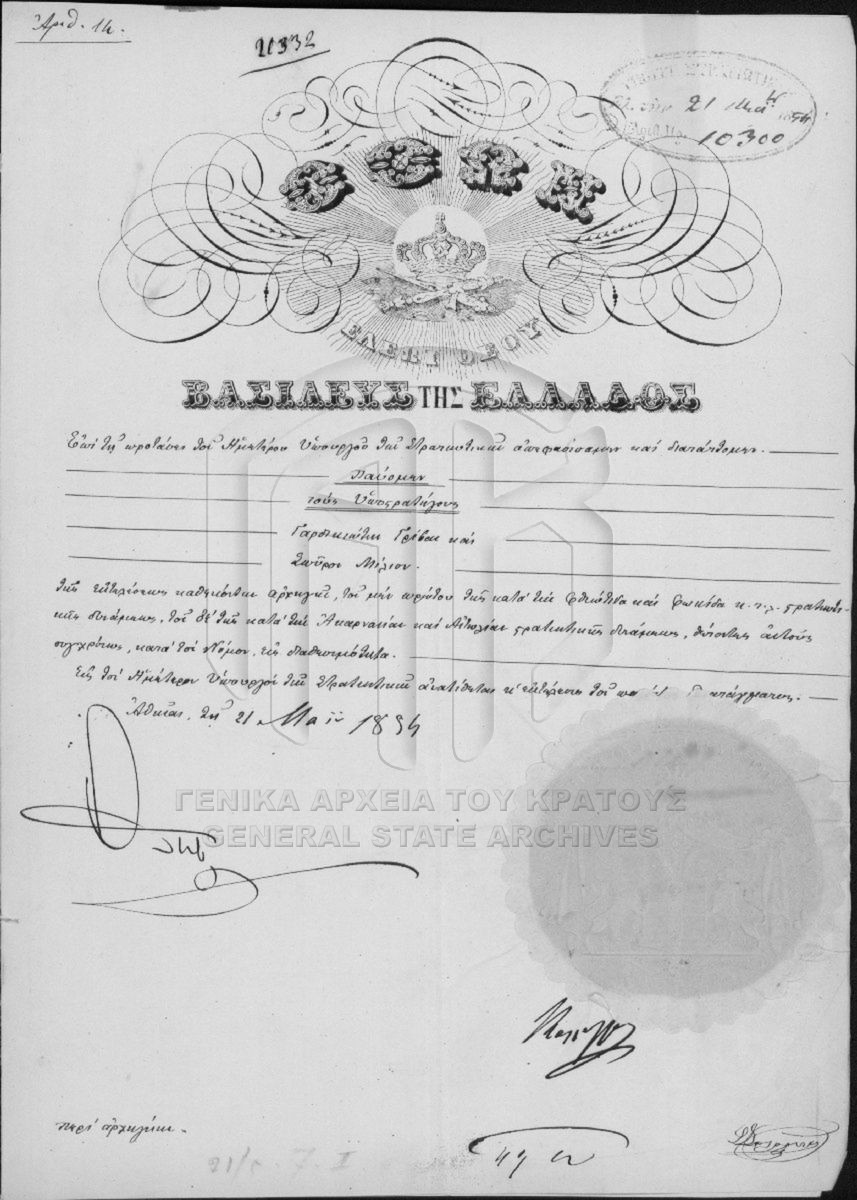 Ἀριθ. 14.
21332
21 Μαΐου 1854
10300
ΟΘΩΝ
ΕΛΕΩι ΘΕΟΥ
ΒΑΣΙΛΕΥΣ ΤΗΣ ΕΛΛΑΔΟΣ
Ἐπὶ τῇ προτάσει τοῦ Ἡμετέρου Ὑπουργοῦ τῶν Στρατιωτικῶν ἀπεφασίσαμεν καὶ διατάττομεν.
Παύομεν
τοὺς Ὑποστρατήγους
Γαρδικιώτην Γρίβαν καὶ
Σπῦρον Μίλιον.
τῆς ἐκτελέσεως καθηκόντων ἀρχηγοῦ, τοῦ μὲν πρώτου τῆς κατὰ τὴν Φθιώτιδα καὶ Φωκίδα κ.τ.λ. στρατιωτι-
κῆς δυνάμεως, τοῦ δὲ τῆς κατὰ τὴν Ἀκαρνανίαν καὶ Αἰτωλίαν στρατιωτικῆς δυνάμεως, θέτοντες αὐτοὺς
συγχρόνως, κατὰ τὸν Νόμον, εἰς διαθεσιμότητα.
Εἰς τὸν Ἡμέτερον Ὑπουργὸν τῶν Στρατιωτικῶν ἀνατίθεται ἡ ἐκτέλεσις τοῦ
Ἀθῆναι, τῇ 21 Μαΐου 1854
ΓΕΝΙΚΑ ΑΡΧΕΙΑ ΤΟΥ ΚΡΑΤΟΥΣ
GENERAL STATE ARCHIVES
Ὄθων
περὶ ἀρχηγίας.